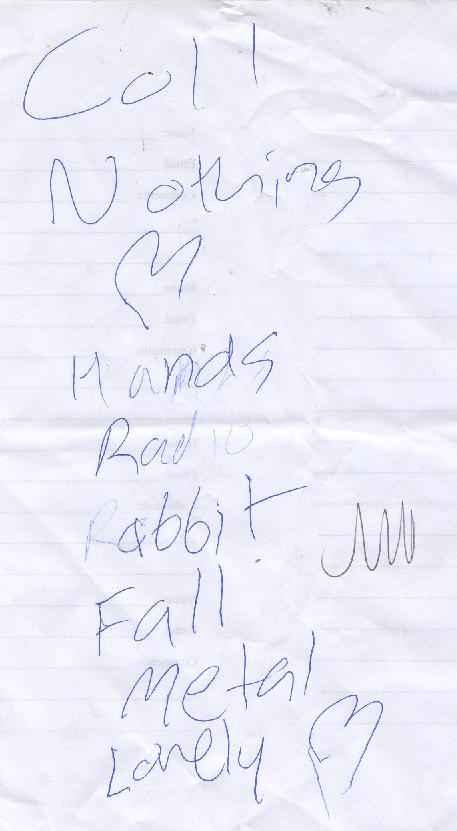 Call
Nothing
♡
Hands
Radio
Rabbit
Fall
Metal
Lonely ♡